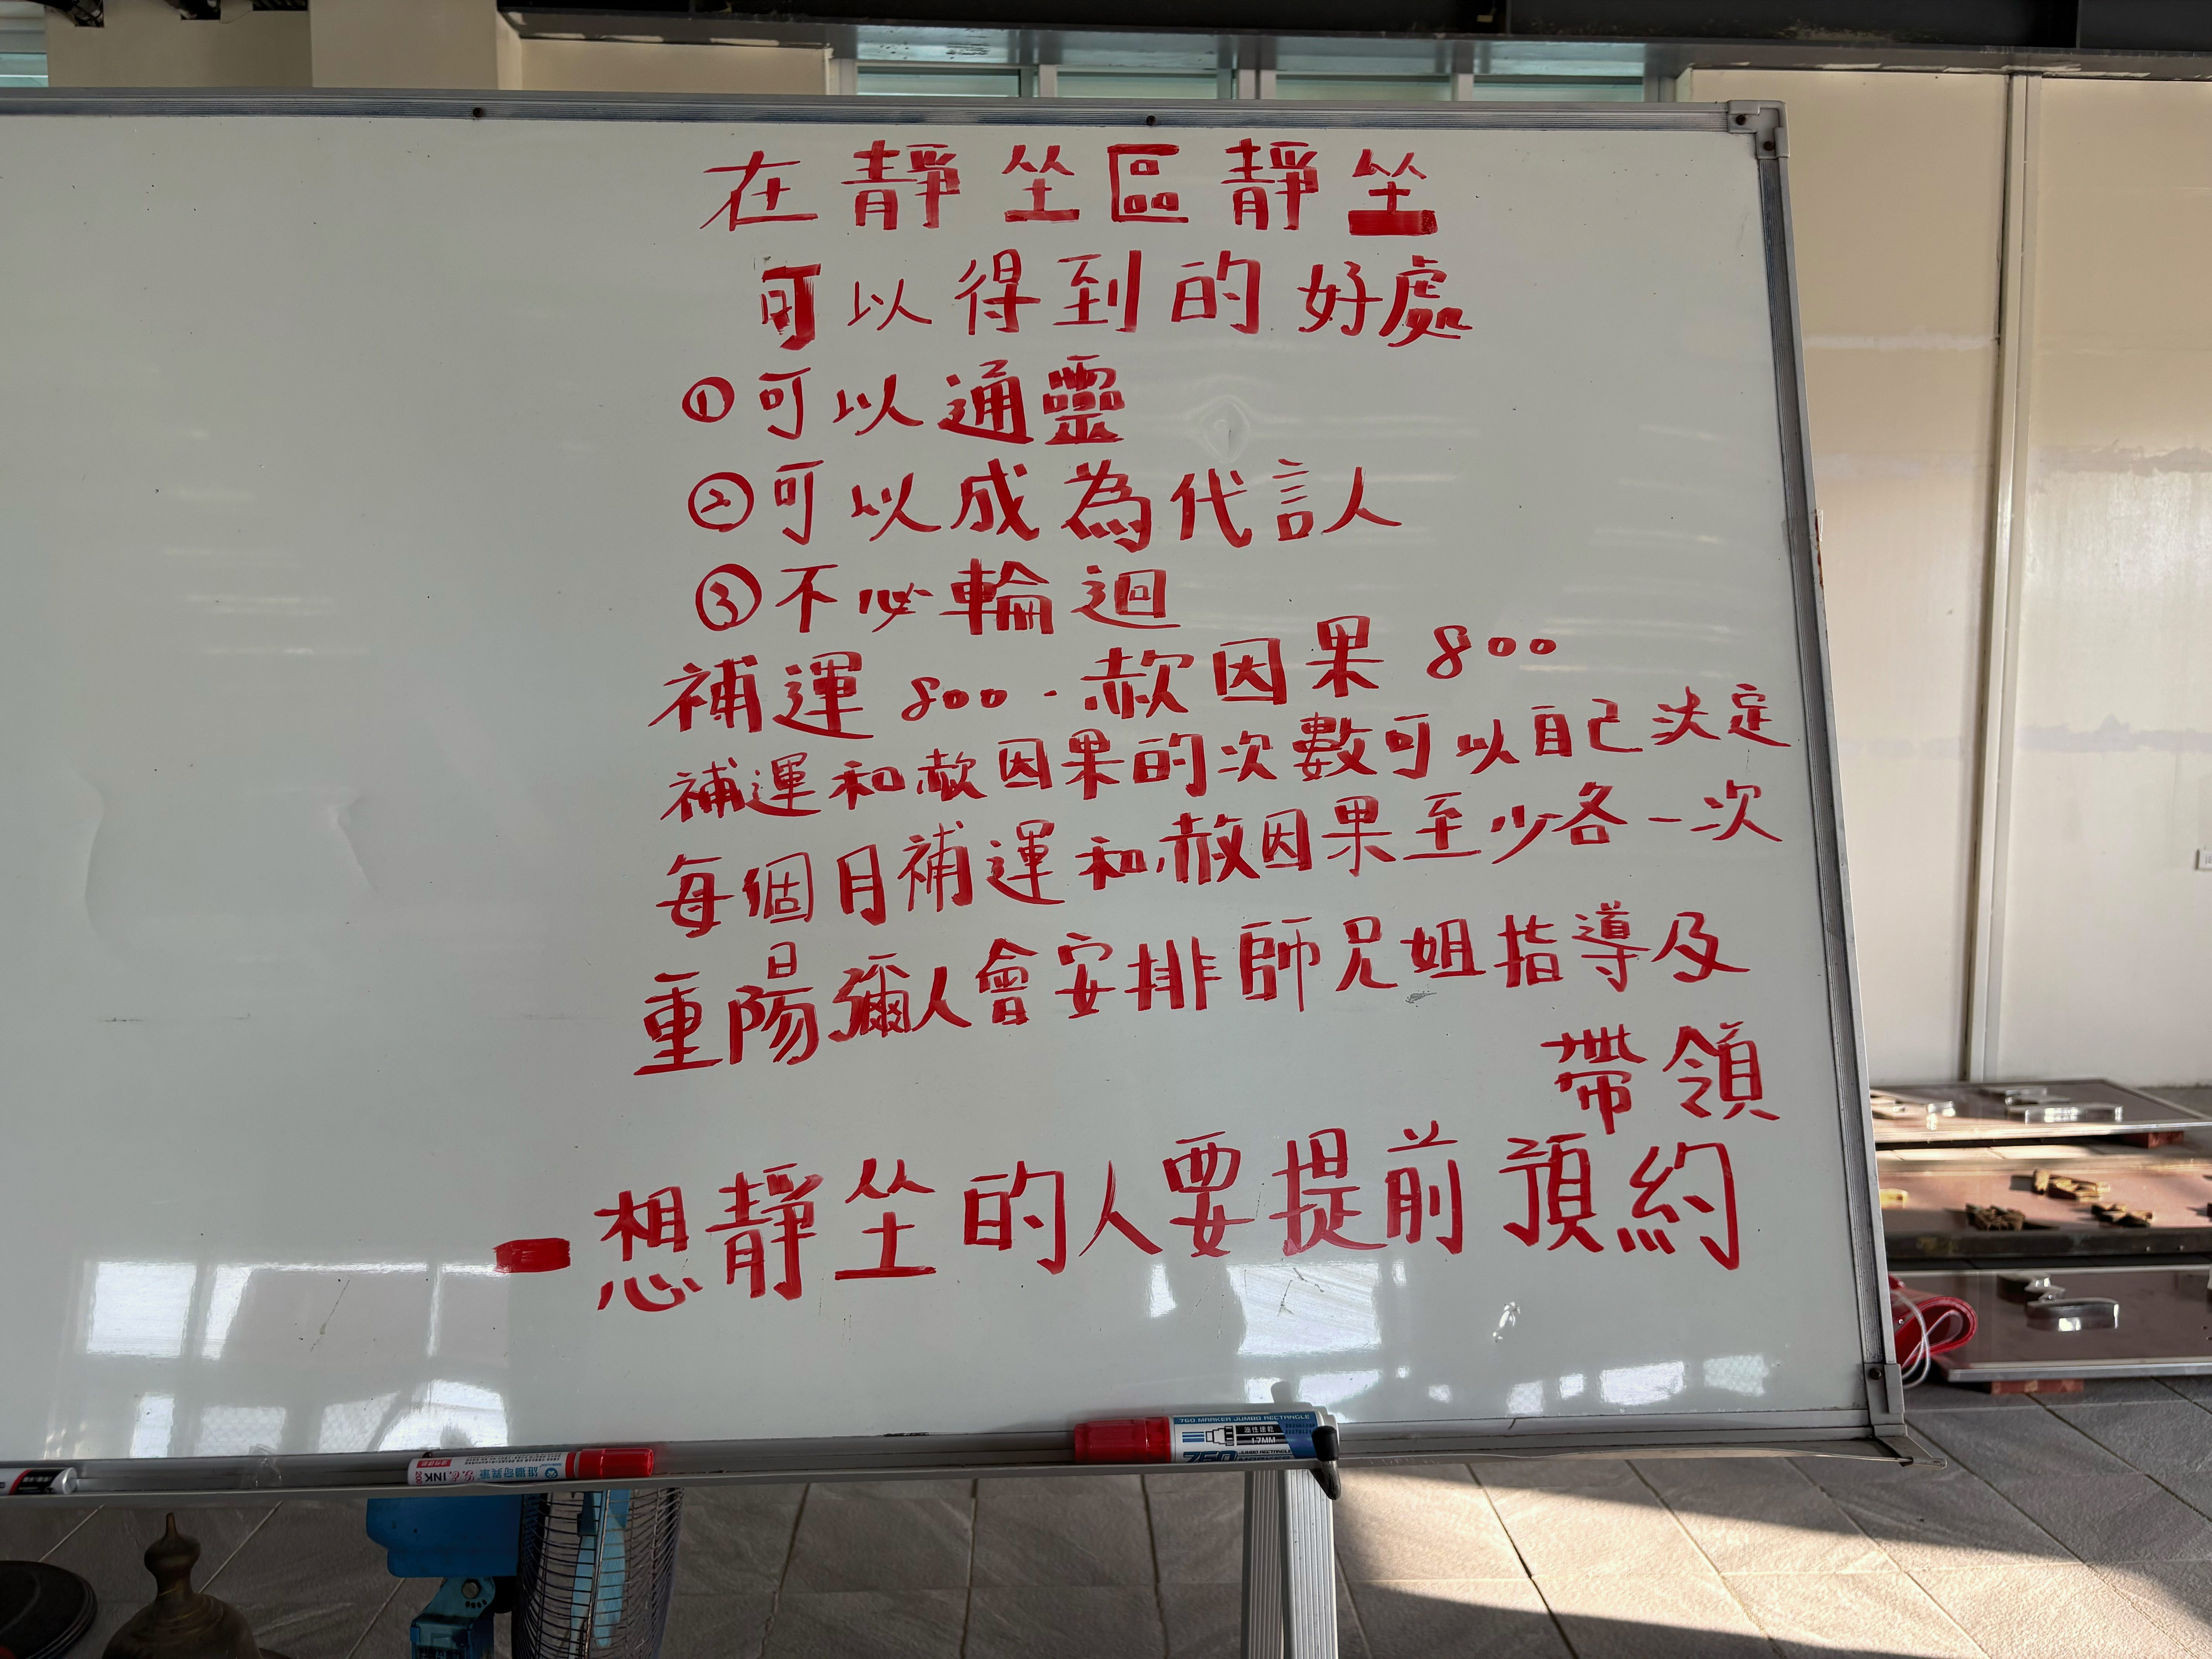 在靜坐區靜坐
可以得到的好處
①可以通靈
②可以成為代言人
③不必輪迴
補運800.赦因果800
補運和赦因果的次數可以自己決定
每個月補運和赦因果至少各一次
重陽彌人會安排師兄姐指導及
帶領
想靜坐的人要提前預約
760 MARKER JUMBO RECTANGLE
油性速乾
17MM
INK